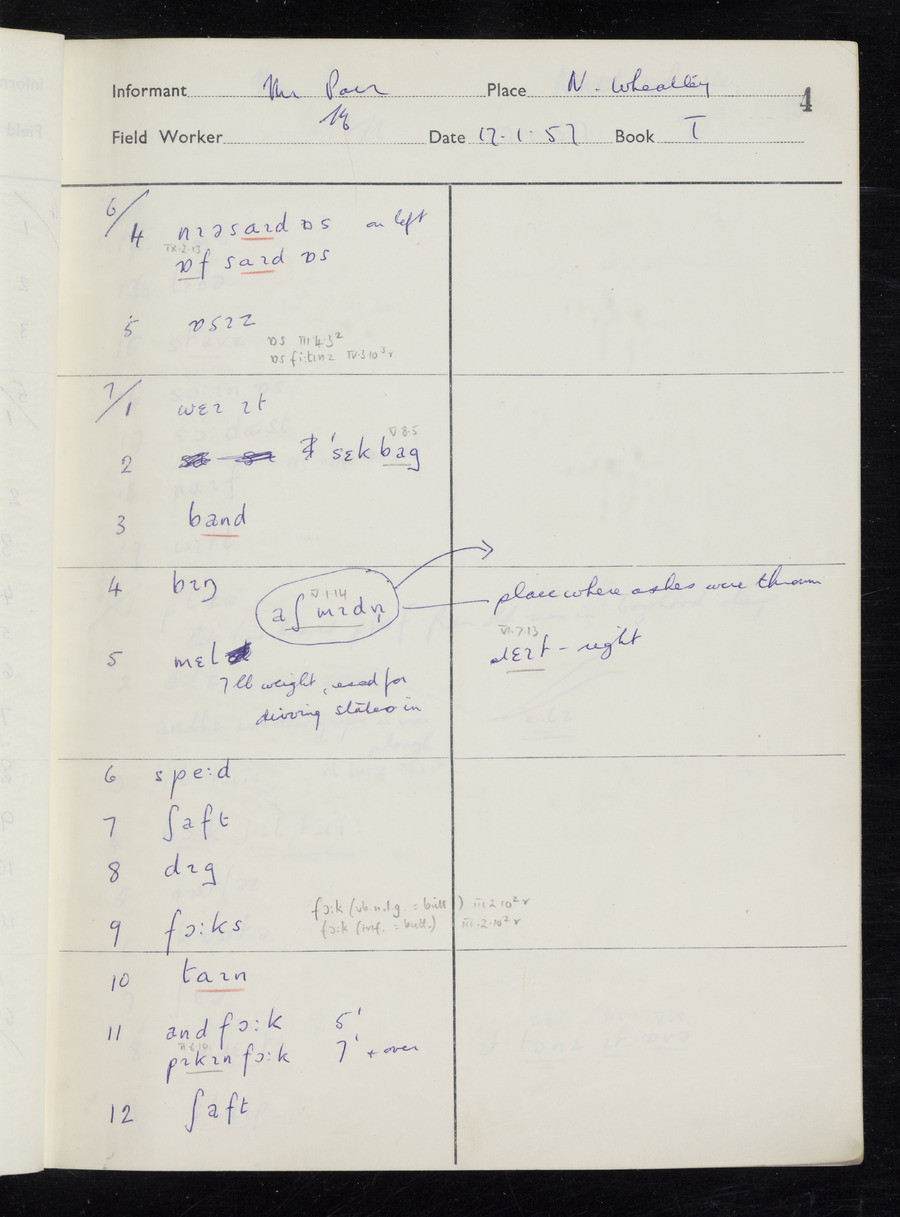 Informant Mr Parr Place N. Wheatley
4
Field Worker Date 17.1.57 Book I
6/4 nɪəsaɪd ɒs on left
IX.2.13
ɒf saɪd ɒs
5 ɒsɪz
ɒs III.4.3²
ɒs fi:tɪnz IV.3.10³v
7/1 wɛɪ ɪt
V.8.5
2 ˈsɛk bag
3 band
4 bɪŋ
V.1.14
aʃ mɪdn̩ place where ashes were thrown
VI.7.13
5 mɛl dɛɪt – right
7 lb weight, used for
driving stakes in
6 spe:d
7 ʃaft
8 dɪg
fɔ:k (vb.n.l.g. = butt) III.2.10²v
9 fɔ:ks fɔ:k (inf. = butt.) III.2.10²v
10 taɪn
11 and fɔ:k 5'
pɪkɪn fɔ:k 7' + over
12 ʃaft